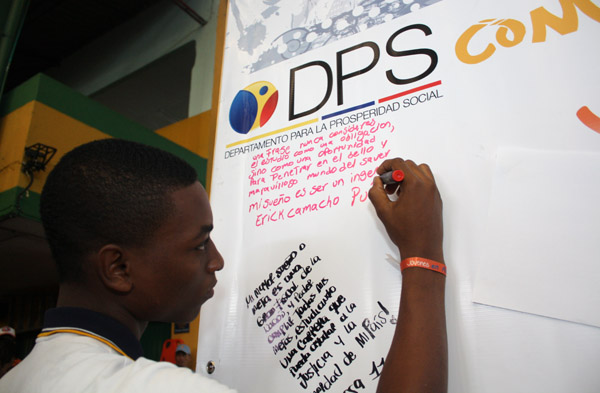 DPS
DEPARTAMENTO PARA LA PROSPERIDAD SOCIAL
Com
una frase nunca consideres
el estudio como una obligacion,
sino como una oportunidad
para Penetrar en el bello y
maravilloso mundo del saver
mi sueño es ser un inge
Erick Camacho Pu
mi mayor sueño o
meta es una
de la
y Poder
cumplir todas mis
metas, estudiando
una carrera que
pueda ayudar a la
Justicia y la
de mi País!
11